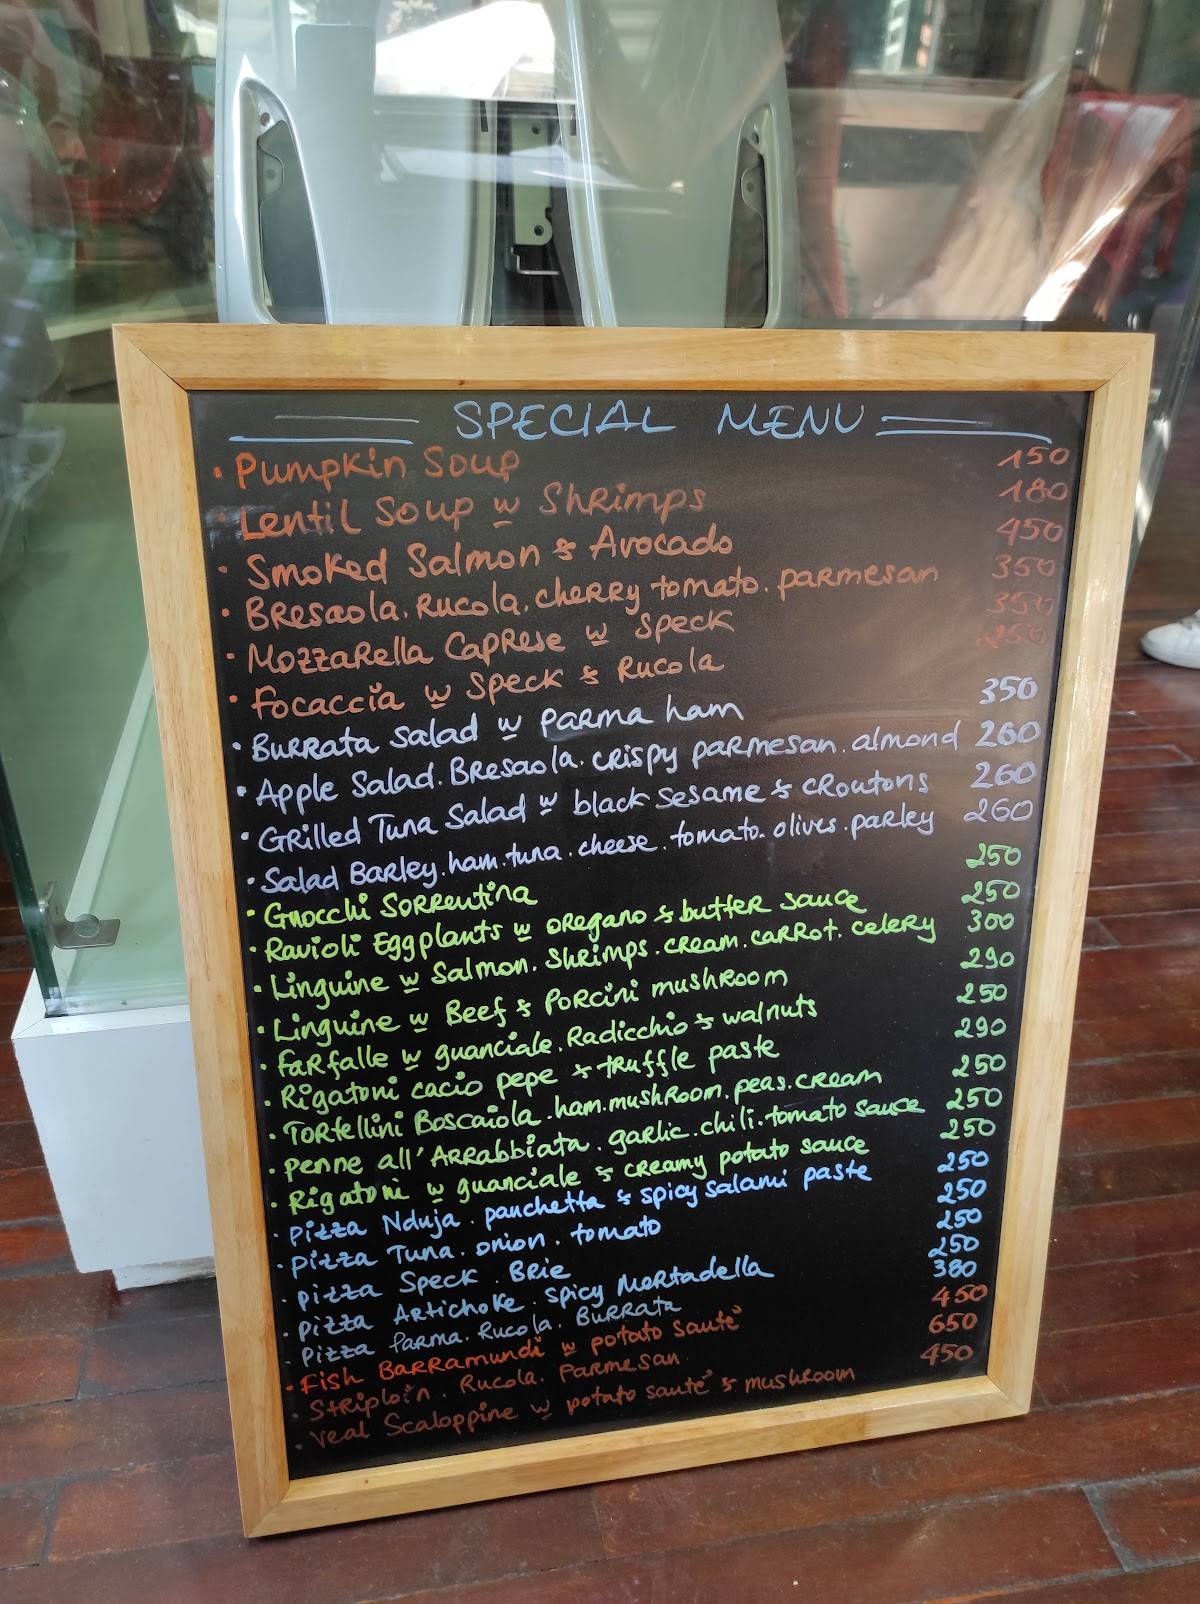 SPECIAL MENU
• Pumpkin Soup 150
• Lentil Soup w Shrimps 180
• Smoked Salmon & Avocado 450
• Bresaola. Rucola. cherry tomato. parmesan 350
• Mozzarella Caprese w Speck 350
• Focaccia w Speck & Rucola 250
• Burrata Salad w Parma ham 350
• Apple Salad. Bresaola. crispy parmesan. almond 260
• Grilled Tuna Salad w black sesame & croutons 260
• Salad Barley. ham. tuna. cheese. tomato. olives. parley 260
• Gnocchi Sorrentina 250
• Ravioli Eggplants w oregano & butter sauce 250
• Linguine w Salmon. Shrimps. cream. carrot. celery 300
• Linguine w Beef & Porcini mushroom 290
• Farfalle w guanciale. Radicchio & walnuts 250
• Rigatoni cacio pepe & truffle paste 290
• Tortellini Boscaiola. ham. mushroom. peas. cream 250
• Penne all'Arrabbiata. garlic. chili. tomato sauce 250
• Rigatoni w guanciale & creamy potato sauce 250
• Pizza Nduja. panchetta & spicy salami paste 250
• Pizza Tuna. onion. tomato 250
• Pizza Speck. Brie 250
• Pizza Artichoke. spicy Mortadella 250
• Pizza Parma. Rucola. Burrata 380
• Fish Barramundi w potato sauté 450
• Striploin. Rucola. Parmesan 650
• Veal Scaloppine w potato sauté & mushroom 450